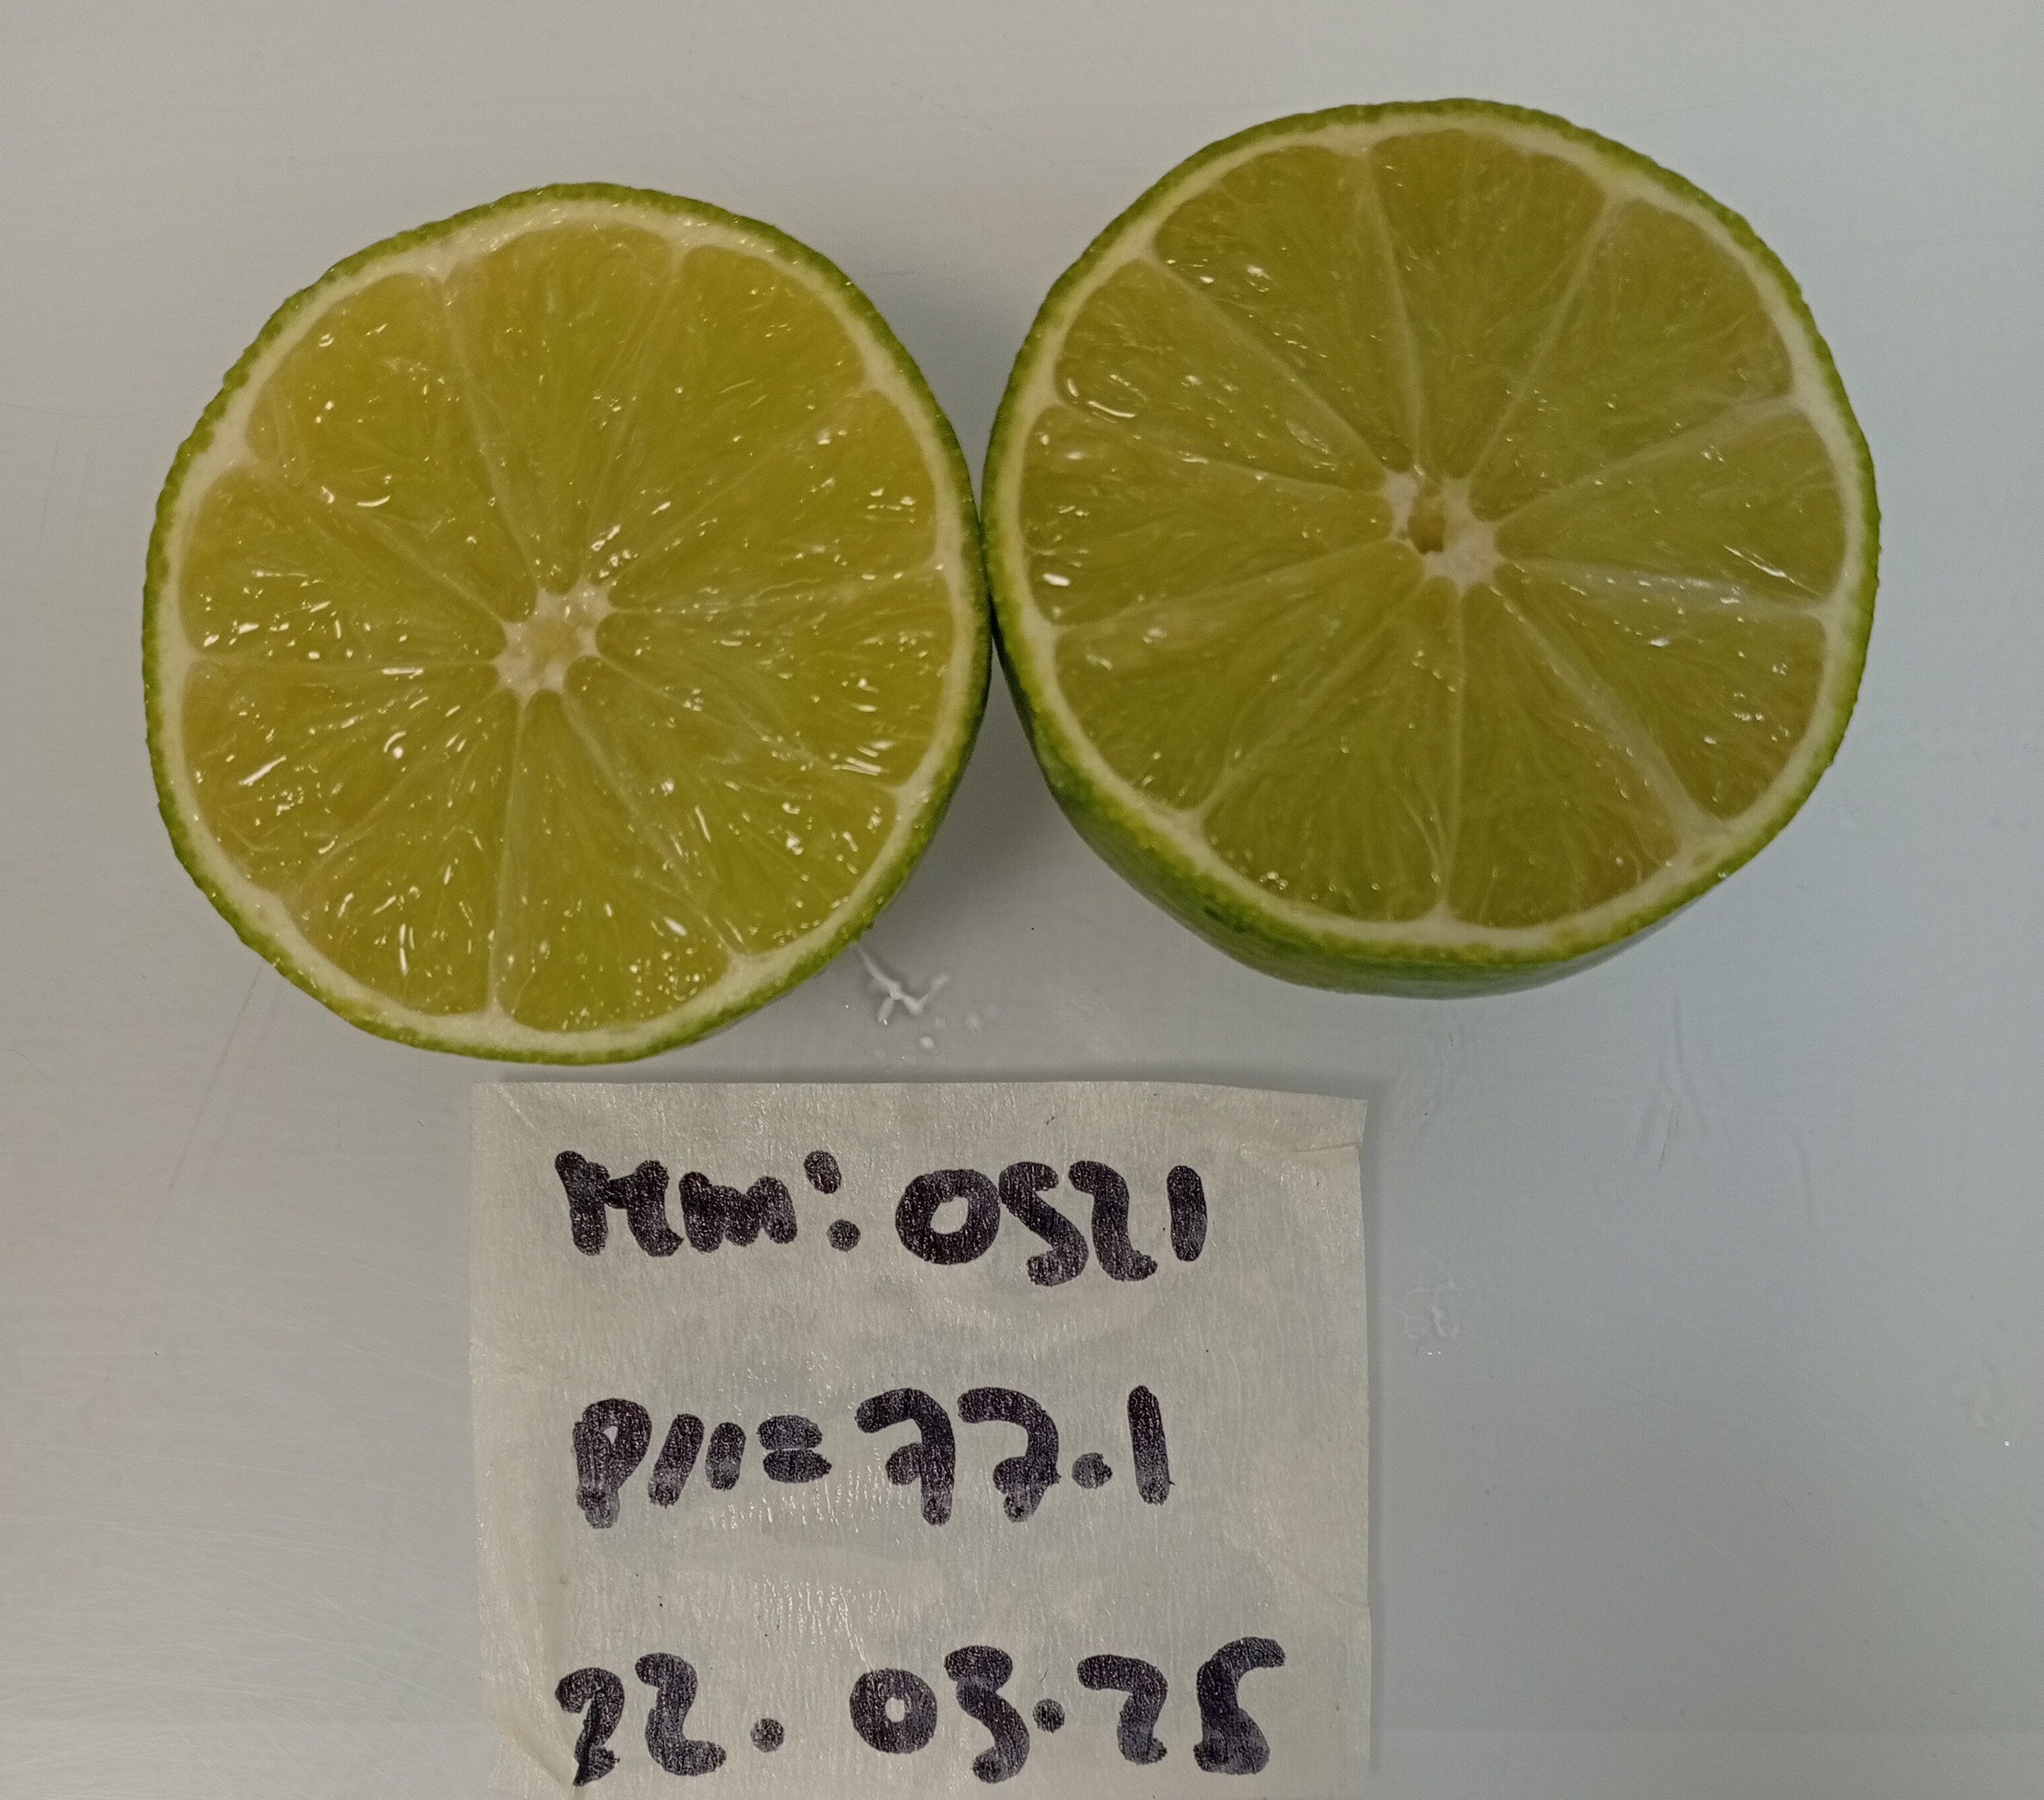 Mm: 0521
P11=77.1
22.03.25